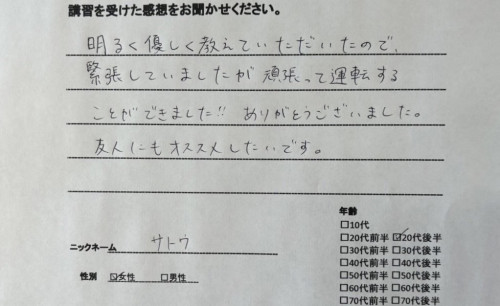 講習を受けた感想をお聞かせください。
明るく優しく教えていただいたので、
緊張していましたが頑張って運転する
ことができました!! ありがとうございました。
友人にもオススメしたいです。
年齢
□10代
□20代前半 ☑20代後半
ニックネーム サトウ
□30代前半 □30代後半
□40代前半 □40代後半
性別 ☑女性 □男性
□50代前半 □50代後半
□60代前半 □60代後半
□70代前半 □70代後半